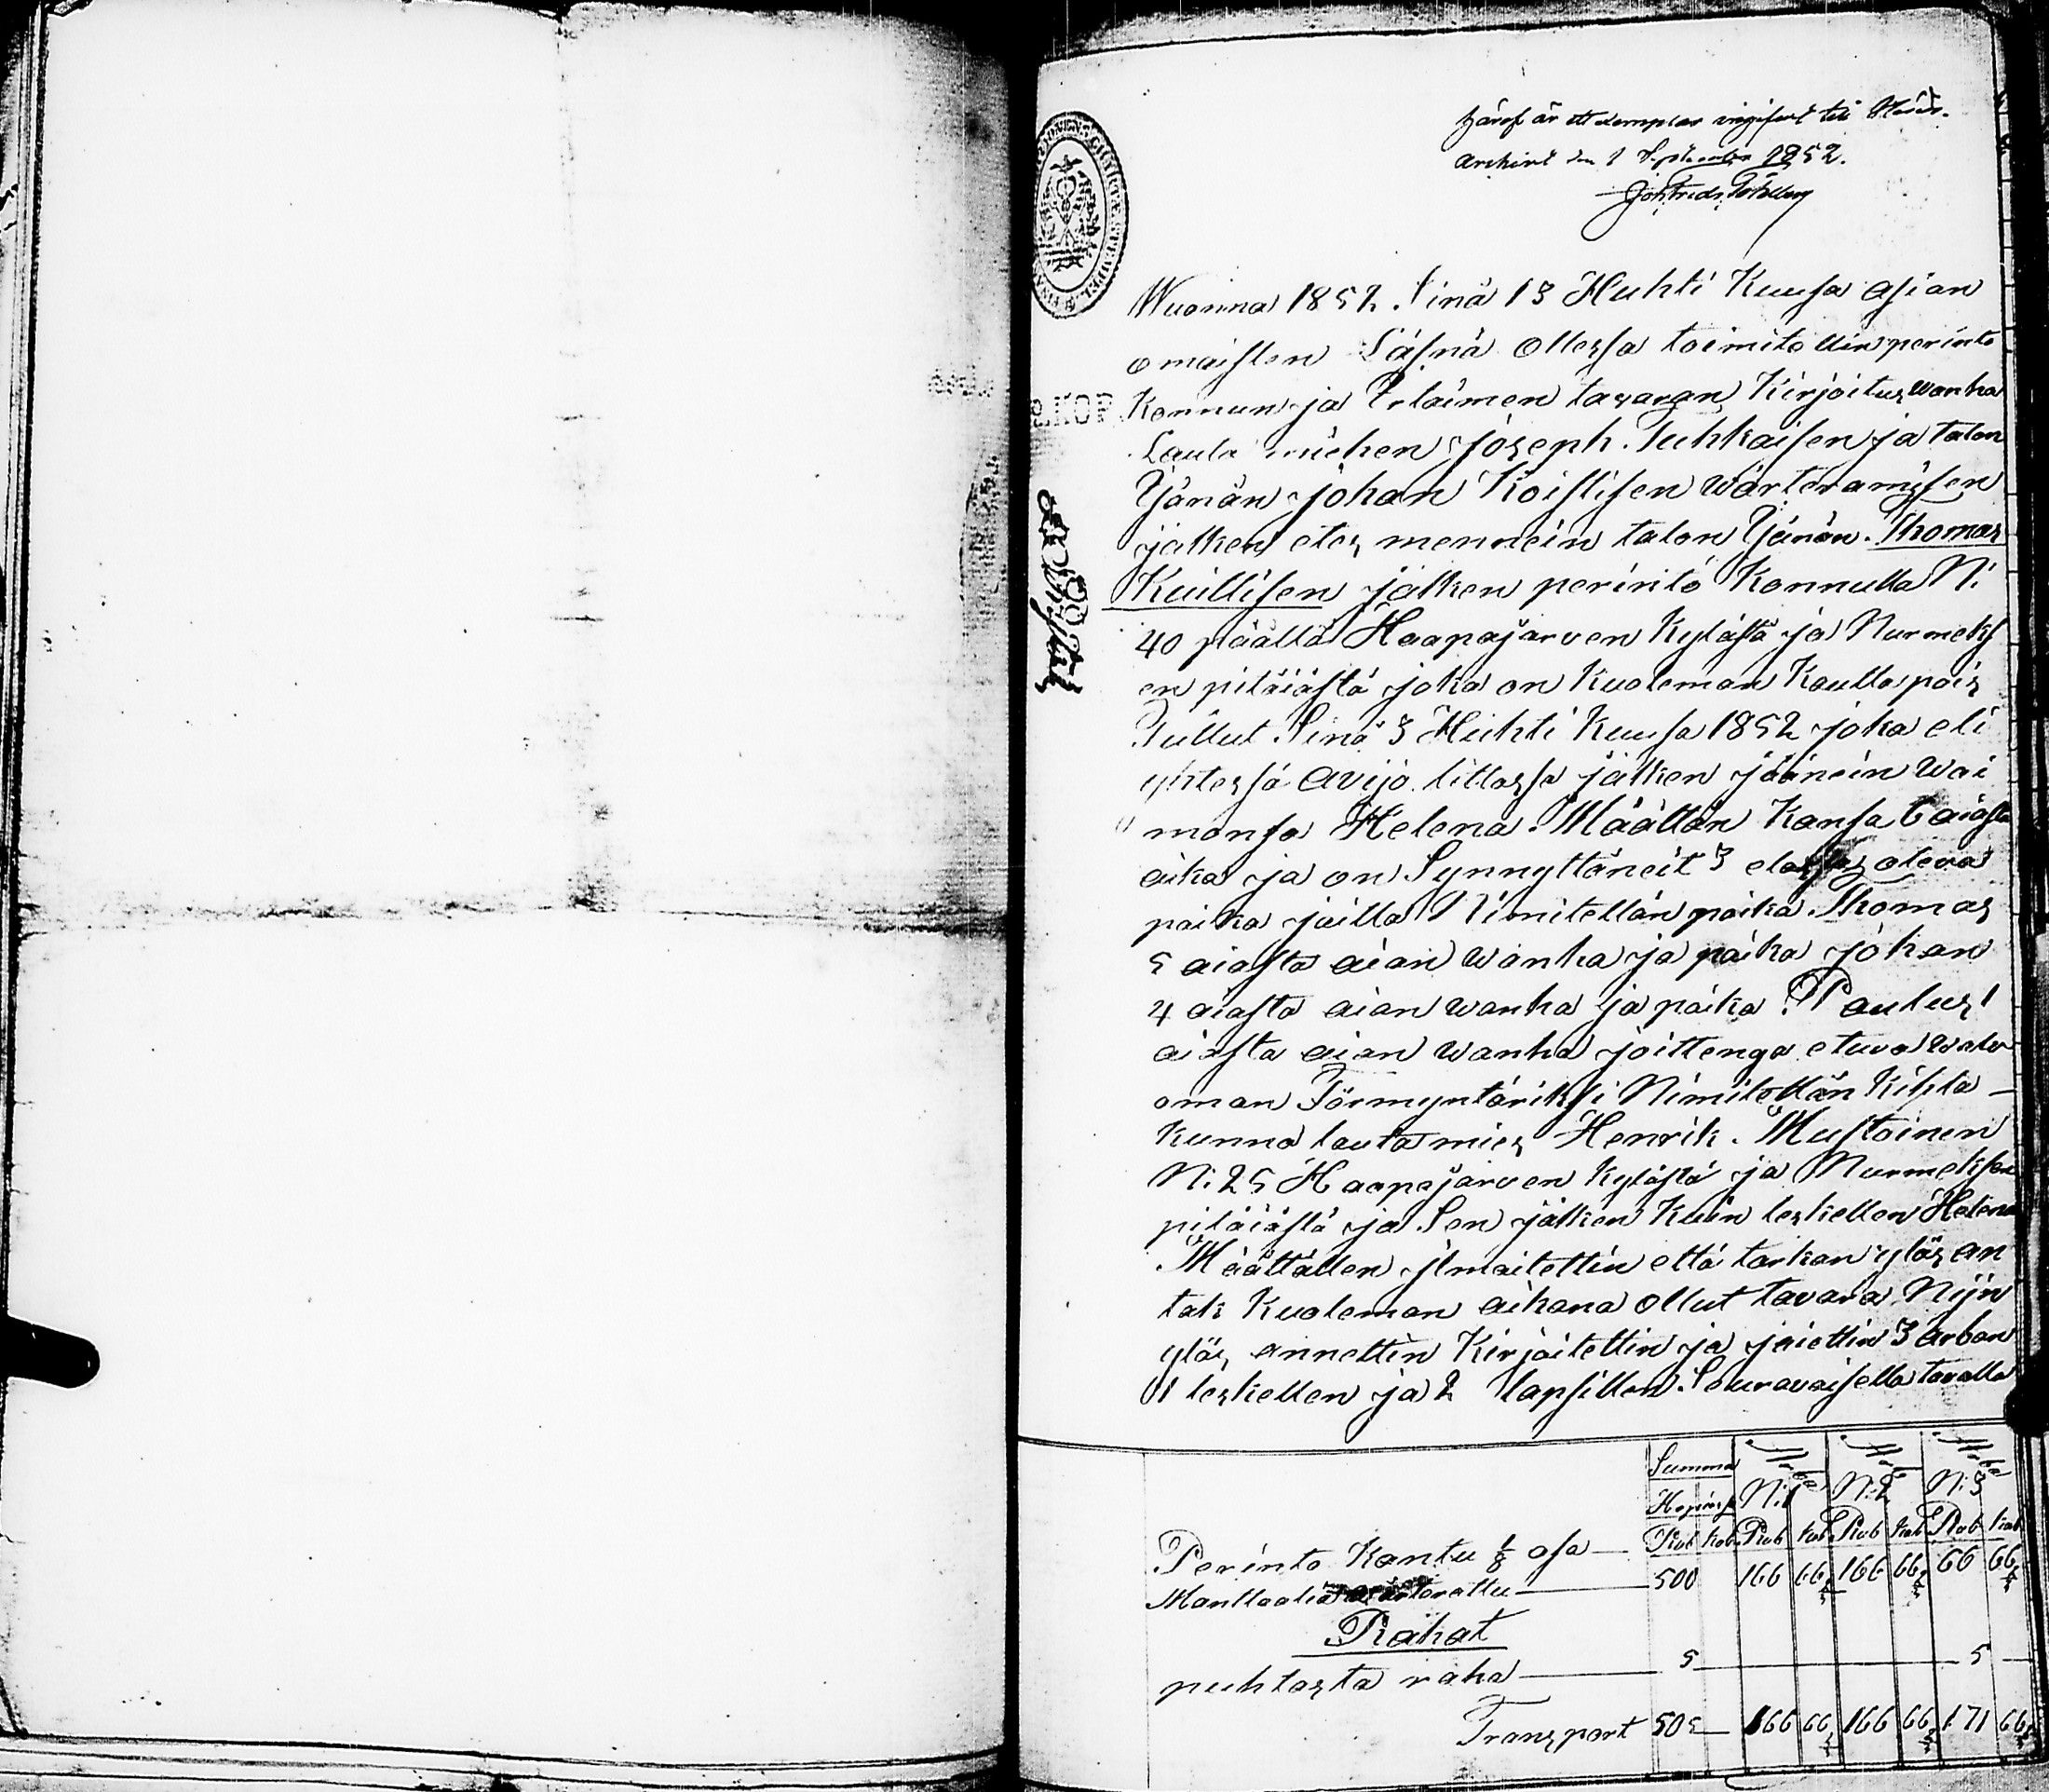 häraf är ett exemplar ingifvet till Härads
archivet den 1 September 1852.
Wuonna 1852. Sinä 13 Huhti Kuusa asian
omaisten Läsnä ollessa toimitettin perintö
Konnun ja Irtaimen tavaran Kirjoitus wanha
Lauta miehen Joseph. Tuhkaisen ja talon
Isänän Johan Koistisen wärteramisen
jälken etes mennein talon Isänän. Thomas
Kuillisen jälken perintö Konnulla N:
40 päältä Haapajärven Kylästä ja Nurmeks
en pitäiästä joka on Kuoleman Kautta pois
Tullut Sinä 3 Huhti Kuusa 1852 joka eli
yhtessä Avijo litossa jälken jäänein wai
monsa Helena. Määttän Kansa 6 aiasta
aika ja on Synnyttäneit 3 elossas oleva
poika joilla Nimitellän poika. Thomas
5 aiasta aian wanha ja poika Johan
4 aiasta aian wanha ja poika. Paulus 1
aiasta aian wanha joittenga etuva walv
oman Förmyntäriksi Nimitettän Kihla-
kunna lautamies Henrik. Mustoinen
N: 25 Haapajärven Kylästä ja Nurmeksen
pitäiästä ja Sen jälken Kuin leskellen Helena
Määttällen Ilmoitettin että tarkan ylös an
tak Kuoleman aikana ollut tavara Nijn
ylös annettin Kirjoitettin ja jaiettin 3 arban
1 leskellen ja 2 lapsillen Seuravaisella tavalla
Summa Arba Arba Arba
Hopiassa N:1 N:2 N:3
Rub Kob Rub Kob Rub Kob Rub Kob
Perintö Kontu 1/8 osa
Manttaalia wärterattu 500 166 66 2/3 166 66 2/3 166 66 2/3
Rahat
puhtasta raha 5 5
Transport 505 166 66 2/3 166 66 2/3 171 66 2/3